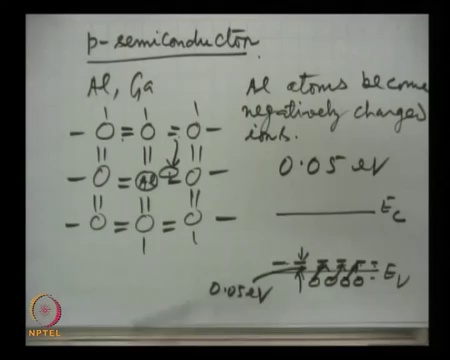 p-semiconductor.
Al, Ga
Al atoms become
negatively charged
ions.
Al
0.05 eV
Ec
Ev
0.05eV
NPTEL